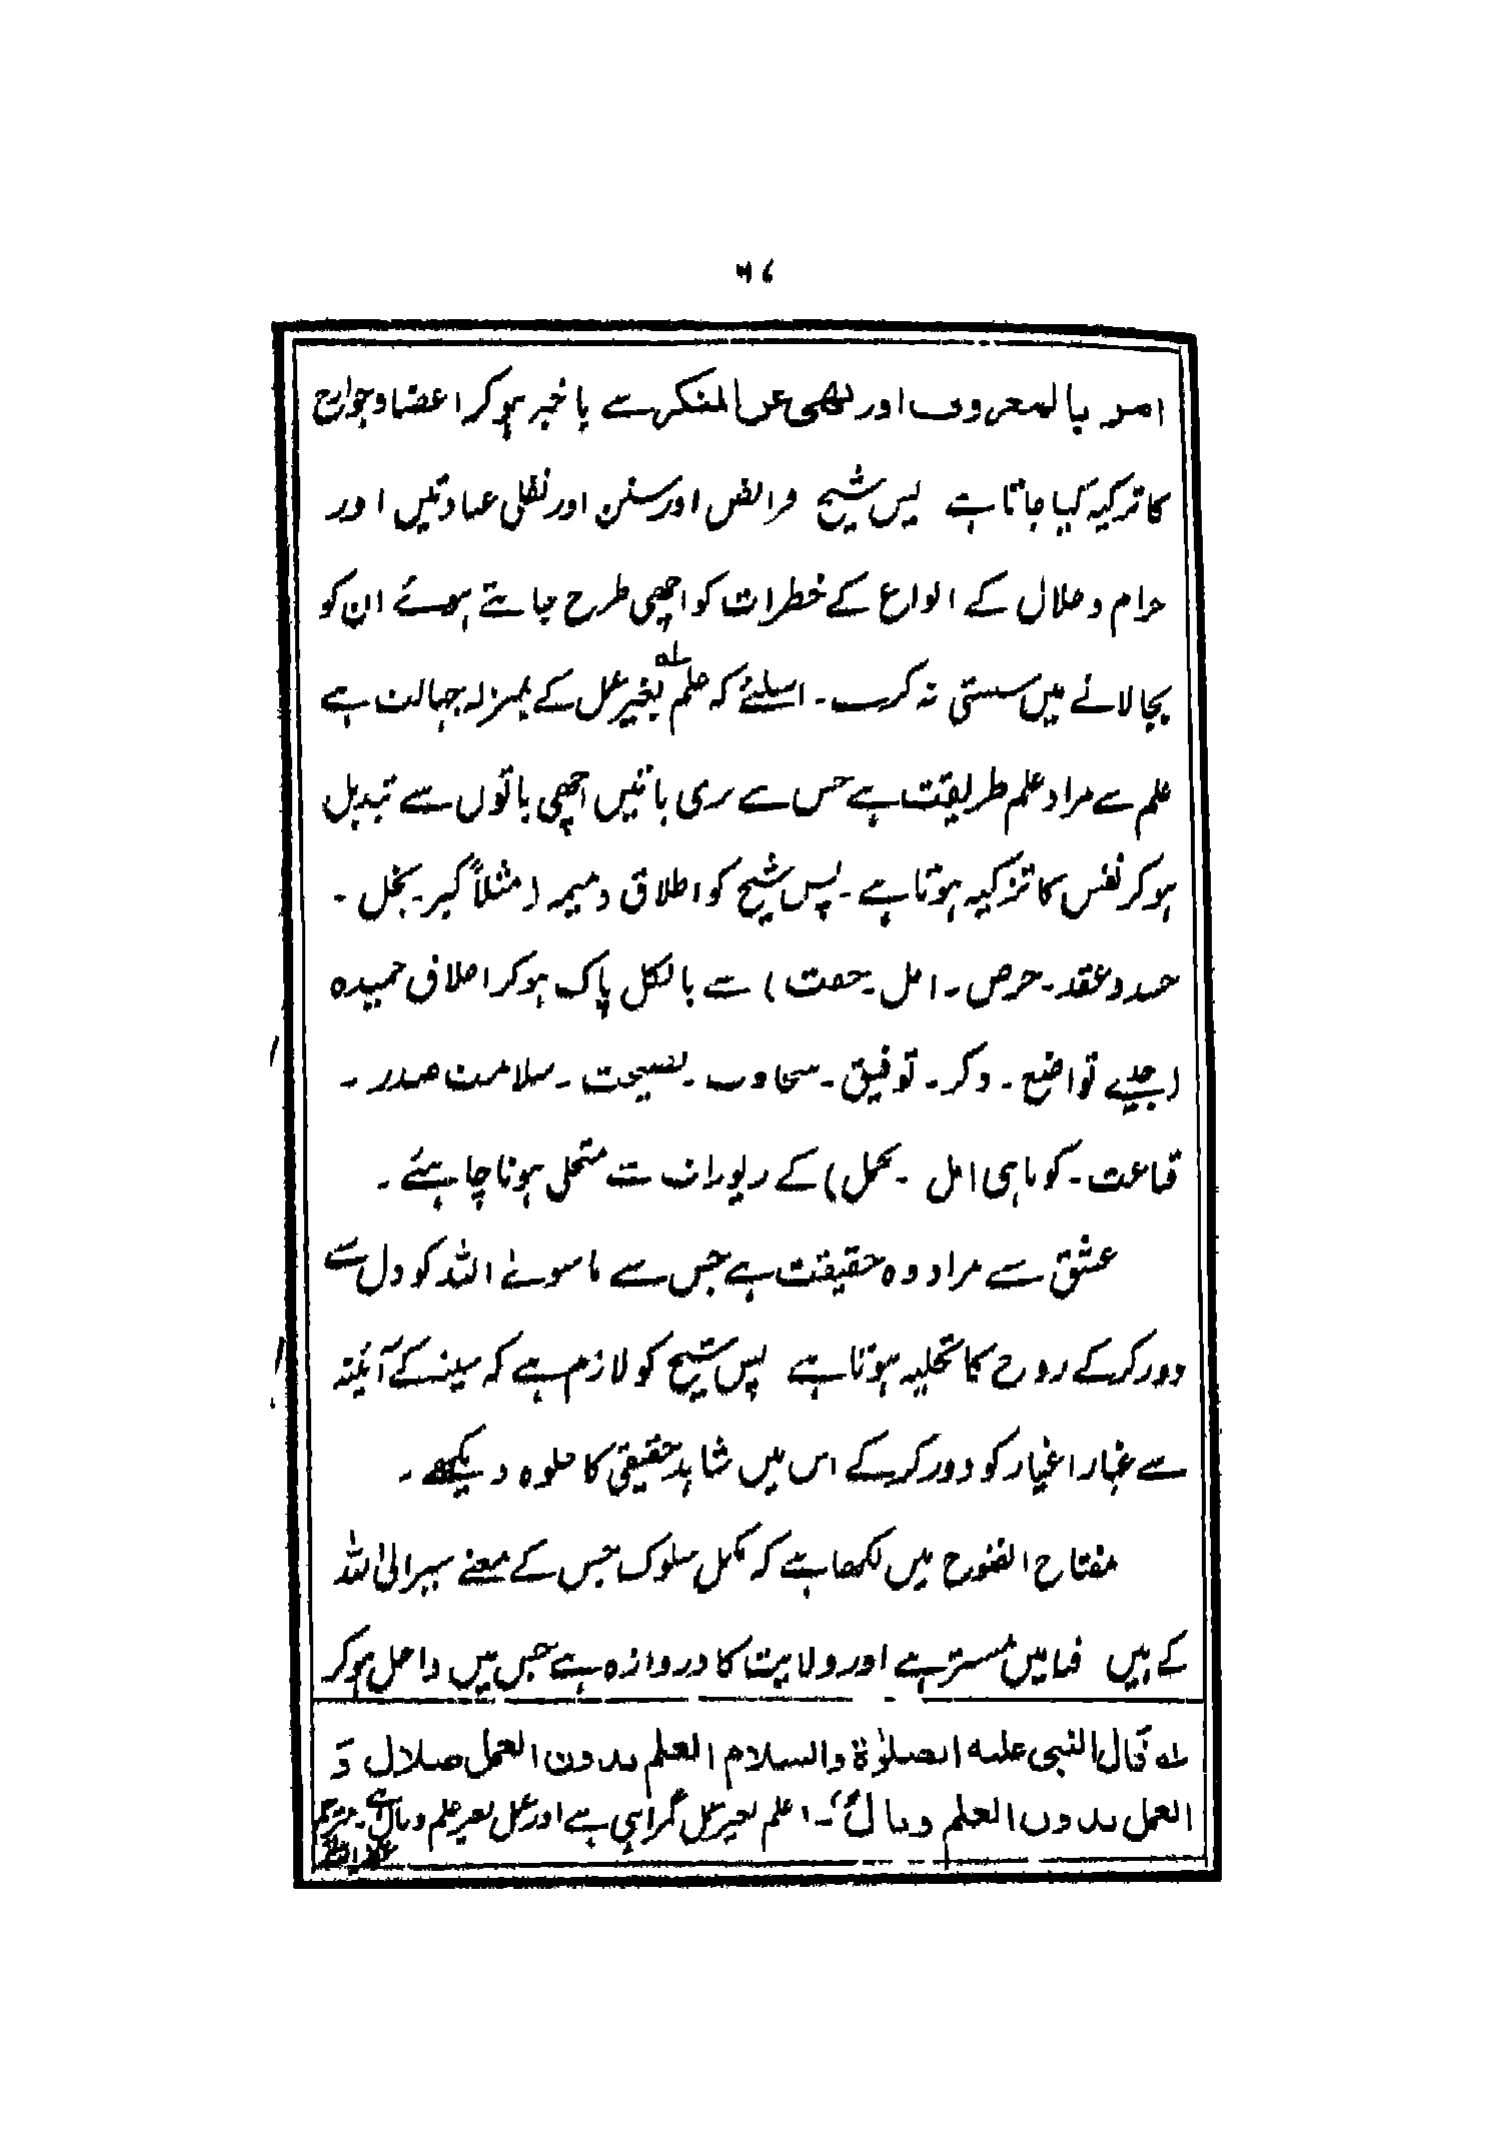 امر بالمعروف اور نهی عن المنکر سے باخبر ہوکر اعضا و جوارح
کا تزکیہ کیا جاتا ہے پس شیخ فرائض اور سنن اور نفلی عبادتیں اور
حرام و حلال کے انواع کے خطرات کو اچھی طرح جانتے ہوئے ان کو
بجا لانے میں سستی نہ کرے۔ اسلئے کہ علم بغیر عمل کے بمنزلہ جہالت ہے
علم سے مراد علم طریقت ہے جس سے بری باتیں اچھی باتوں سے تبدیل
ہوکر نفس کا تزکیہ ہوتا ہے۔ پس شیخ کو اخلاق ذمیمہ (مثلاً کبر۔ بخل۔
حسد و عقد۔ حرص۔ امل۔ خفت) سے بالکل پاک ہوکر اخلاق حمیدہ
(جیسے تواضع۔ ذکر۔ توفیق۔ سخاوت۔ نصیحت۔ سلامت صدر۔
قناعت۔ کوتاہی امل۔ تحمل) کے زیورات سے متحلی ہونا چاہئے۔
عشق سے مراد وہ حقیقت ہے جس سے ماسوئے اللہ کو دل سے
دور کرکے روح کا تخلیہ ہوتا ہے پس شیخ کو لازم ہے کہ سینہ کے آئینہ
سے غبار اغیار کو دور کرکے اس میں شاہد حقیقی کا جلوہ دیکھے۔
مفتاح الفتوح میں لکھا ہے کہ مکمل سلوک جس کے معنے سیر الی اللہ
کے ہیں فنا میں مستتر ہے اور ولایت کا دروازہ ہے جس میں داخل ہوکر
لہ قال النبی علیہ الصلوٰۃ والسلام العلم بدون العمل ضلال و
العمل بدون العلم وبالٌ"۔ علم بغیر عمل گمراہی ہے اور عمل بغیر علم وبال ہے۔ مترجم